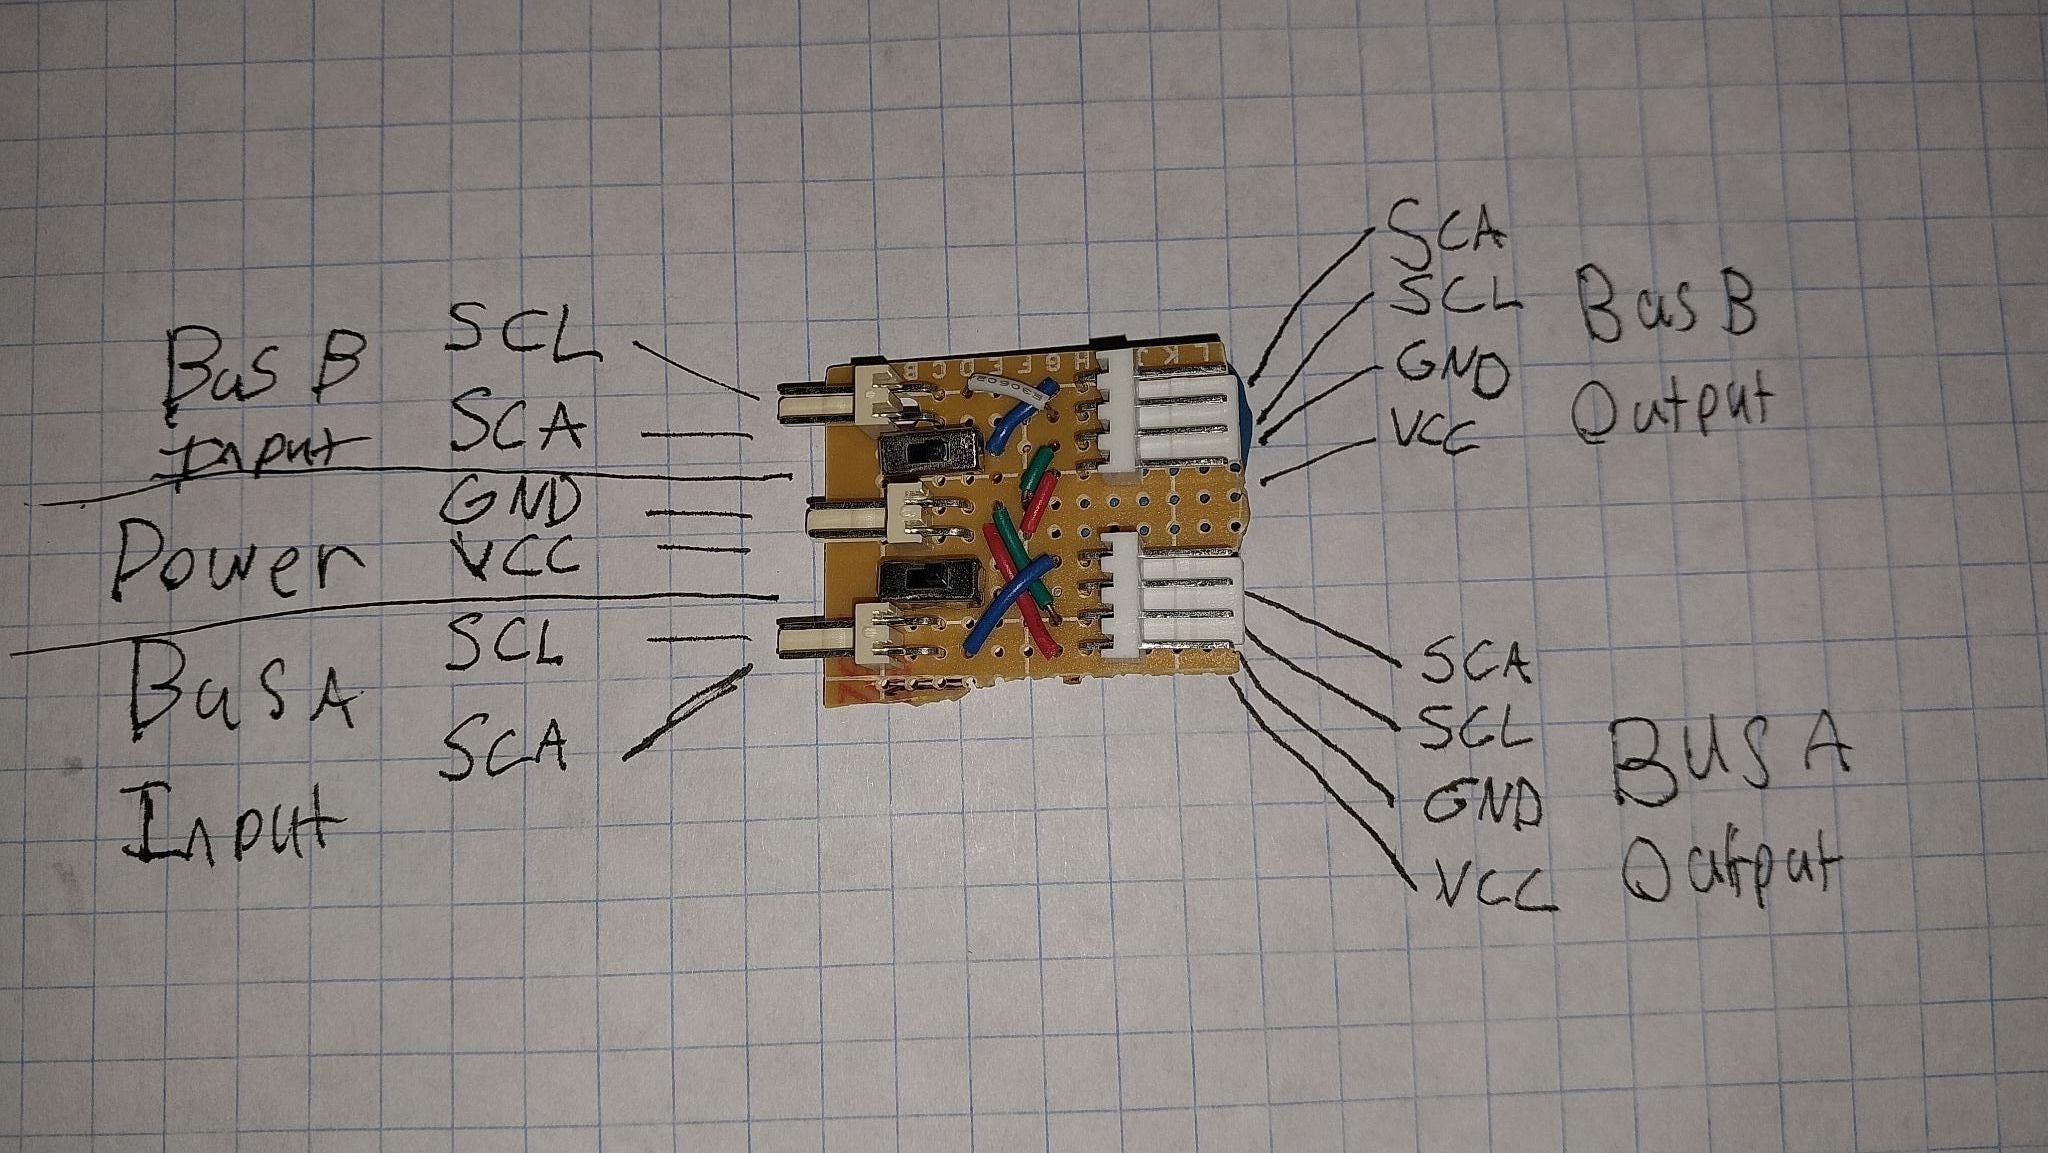 Bus B
Input
SCL
SCA
Power
GND
VCC
Bus A
Input
SCL
SCA
B C D E F G H J K L
SCA
SCL
GND
VCC
Bus B
Output
SCA
SCL
GND
VCC
BUS A
Output